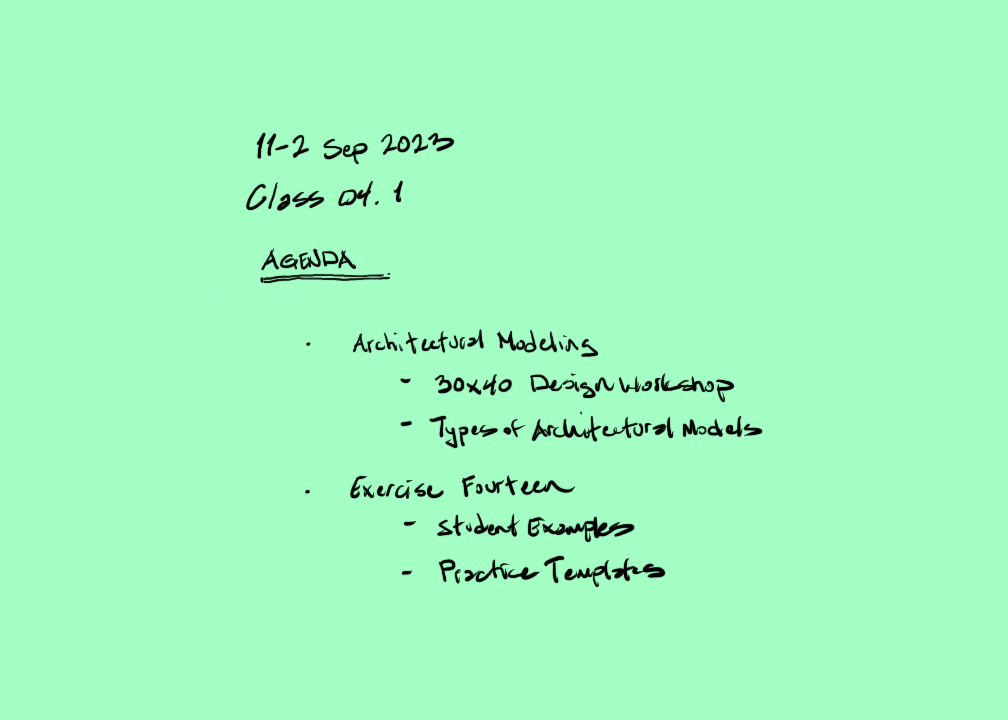 11-2 Sep 2023
Class 04.1
AGENDA
· Architectural Modeling
- 30x40 Design Workshop
- Types of Architectural Models
· Exercise Fourteen
- Student Examples
- Practice Templates